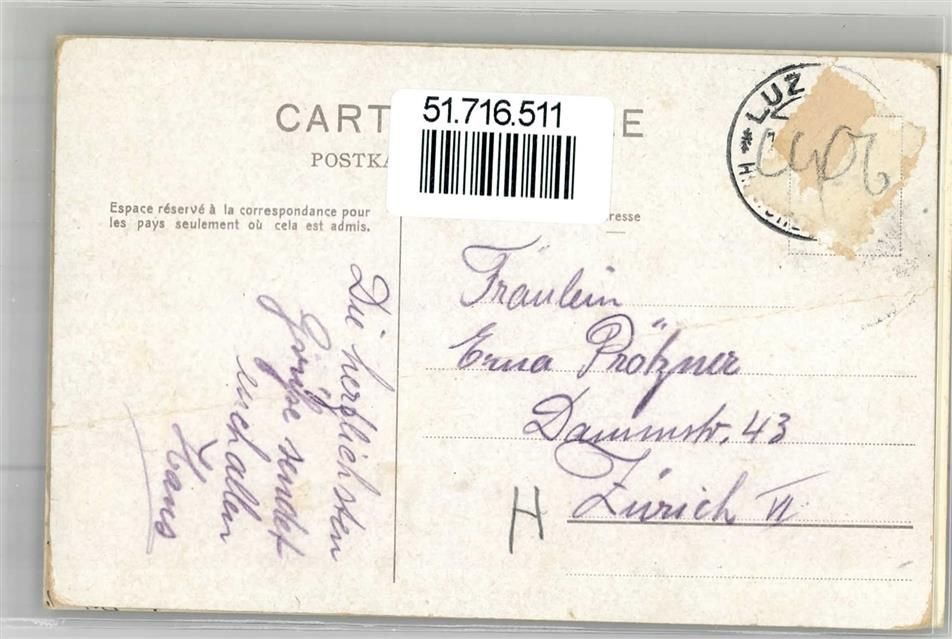 CART
E
51.716.511
POSTKA
LUZ
Espace réservé à la correspondance pour
les pays seulement où cela est admis.
resse
Die herzlichsten
Grüße sendet
euch allen
Hans
Fräulein
Erna Prötzner
Dammstr. 43
Zürich VI
H